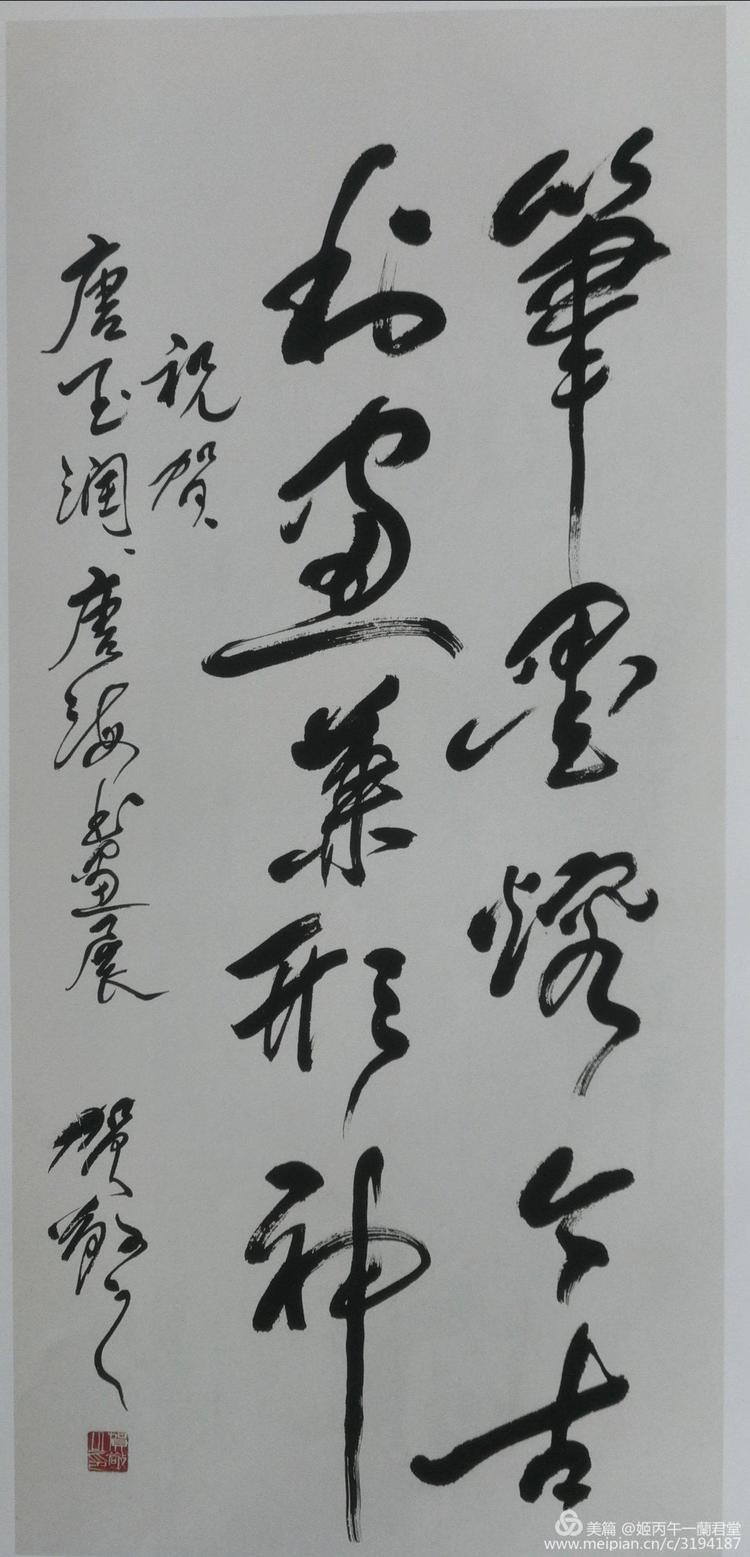 筆墨熔今古
刻畫兼形神
祝贺
唐润、唐海书畫展
贺敬之
美篇 @姬丙午一蘭君堂
www.meipian.cn/c/3194187